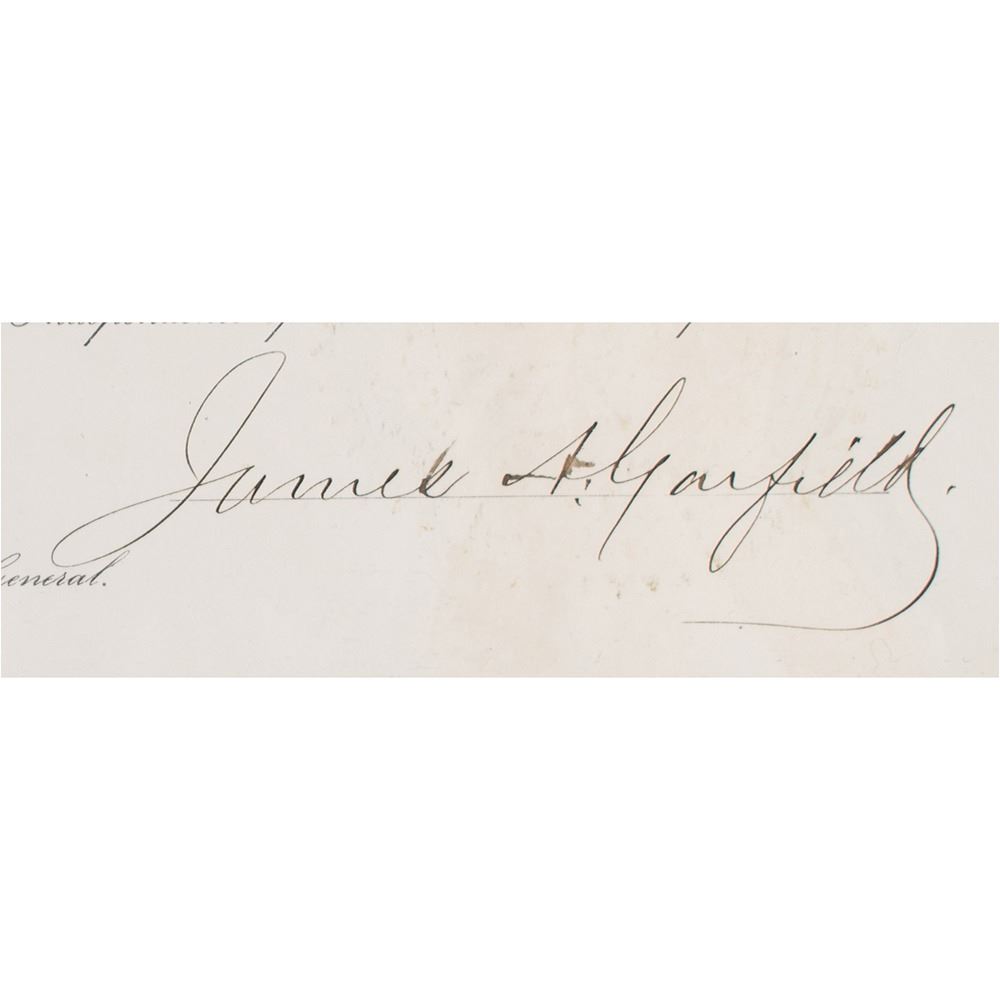 James A. Garfield.
General.